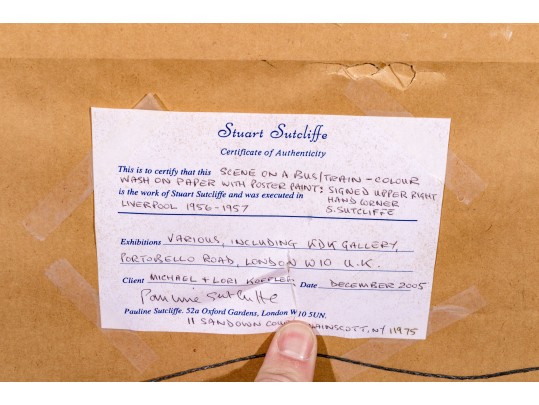 Stuart Sutcliffe
Certificate of Authenticity
This is to certify that this SCENE ON A BUS/TRAIN - COLOUR
WASH ON PAPER WITH POSTER PAINT; SIGNED UPPER RIGHT
is the work of Stuart Sutcliffe and was executed in HAND CORNER
LIVERPOOL 1956-1957 S. SUTCLIFFE
Exhibitions VARIOUS, INCLUDING GALLERY,
PORTOBELLO ROAD, LONDON W10 U.K.
Client MICHAEL + LORI Date DECEMBER 2005
Pauline Sutcliffe
Pauline Sutcliffe. 52a Oxford Gardens, London W10 5UN.
11 SANDOWN WAINSCOTT, NY 11975